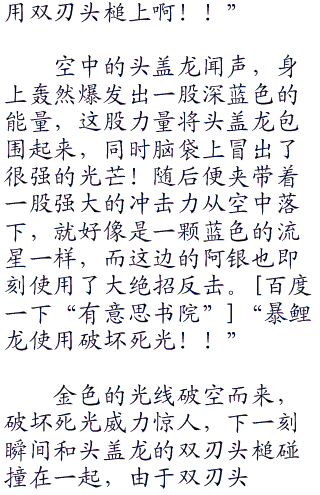 用双刃头槌上啊！！”
空中的头盖龙闻声，身
上轰然爆发出一股深蓝色的
能量，这股力量将头盖龙包
围起来，同时脑袋上冒出了
很强的光芒！随后便夹带着
一股强大的冲击力从空中落
下，就好像是一颗蓝色的流
星一样，而这边的阿银也即
刻使用了大绝招反击。[百度
一下“有意思书院”]“暴鲤
龙使用破坏死光！！”
金色的光线破空而来，
破坏死光威力惊人，下一刻
瞬间和头盖龙的双刃头槌碰
撞在一起，由于双刃头